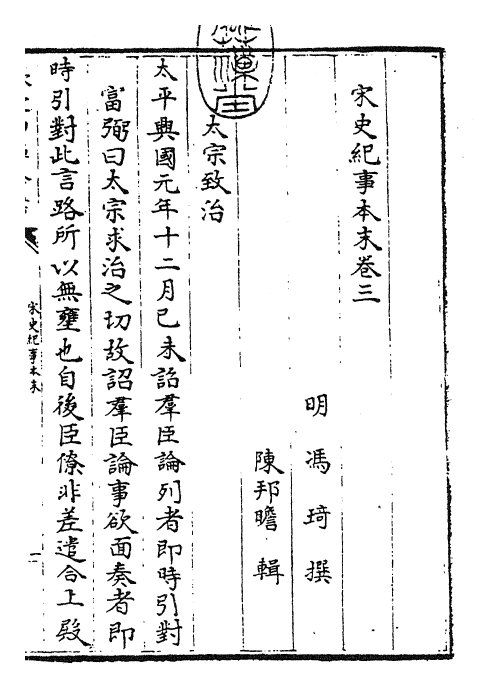 宋史紀事本末卷三
明 馮琦 撰
陳邦瞻 輯
太宗致治
太平興國元年十二月己未詔羣臣論列者即時引對
富弼曰太宗求治之切故詔羣臣論事欲面奏者即
時引對此言路所以無壅也自後臣僚非差遣合上殿
宋史紀事本末
一